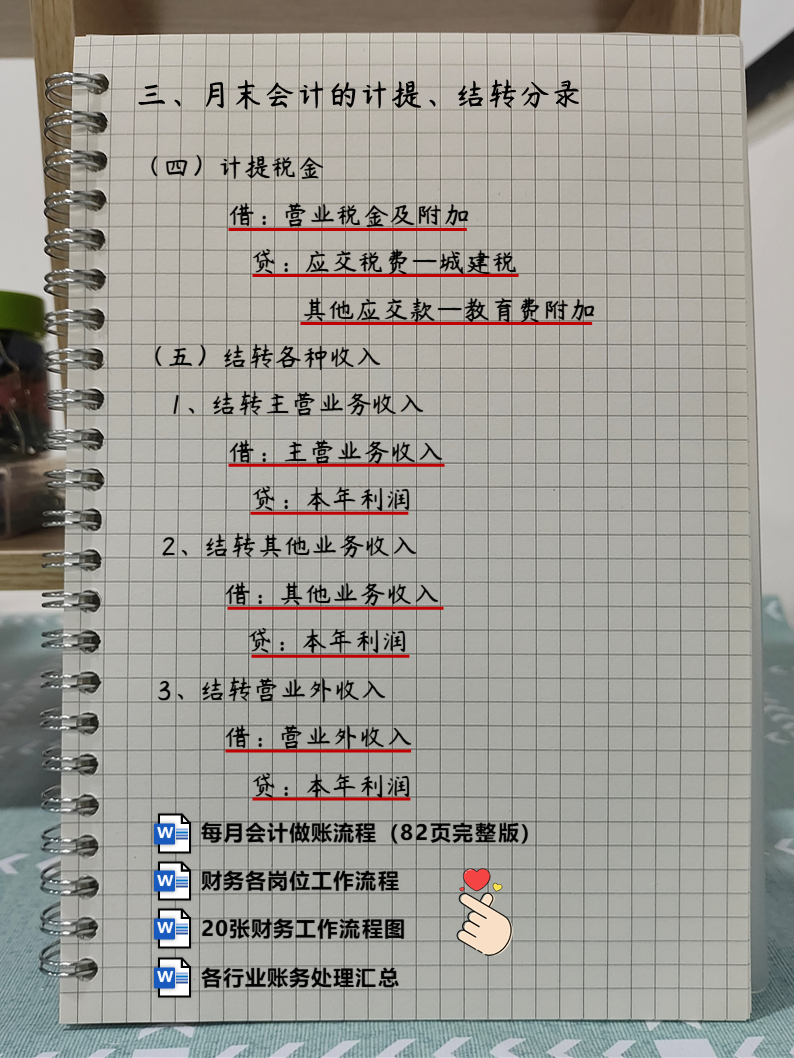 三、月末会计的计提、结转分录
（四）计提税金
借：营业税金及附加
贷：应交税费—城建税
其他应交款—教育费附加
（五）结转各种收入
1、结转主营业务收入
借：主营业务收入
贷：本年利润
2、结转其他业务收入
借：其他业务收入
贷：本年利润
3、结转营业外收入
借：营业外收入
贷：本年利润
W 每月会计做账流程（82页完整版）
W 财务各岗位工作流程
W 20张财务工作流程图
W 各行业账务处理汇总